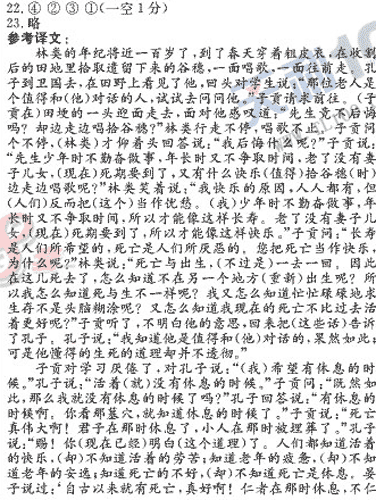 22.④ ② ③ ①(一空1分)
23.略
参考译文:
林类的年纪将近一百岁了,到了春天穿着粗皮衣,在收割
后的田地里拾取遗留下来的谷穗,一面唱歌,一面往前走。孔
子到卫国去,在田野上看见了他,回头对学生说:“那位老人是
个值得和(他)对话的人,试试去问问他。”子贡请求前往。(子
贡在)田埂的一头迎面走去,面对他感叹道:“先生竟不后悔
吗?却边走边唱拾谷穗?”林类行走不停,唱歌不止。子贡问
个不停,(林类)才仰着头回答说:“我后悔什么呢?”子贡说:
“先生少年时不勤奋做事,年长时又不争取时间,老了没有妻
子儿女,(现在)死期要到了,又有什么快乐(值得)拾谷穗(时)
边走边唱歌呢?”林类笑着说:“我快乐的原因,人人都有,但
(人们)反而把(这个)当作忧愁。(我)少年时不勤奋做事,年
长时又不争取时间,所以才能像这样长寿。老了没有妻子儿
女,(现在)死期要到了,所以才能像这样快乐。”子贡问:“长寿
是人们所希望的,死亡是人们所厌恶的。您把死亡当作快乐,
为什么呢?”林类说:“死亡与出生,(不过是)一去一回。因此
在这儿死去了,怎么知道不在另一个地方(重新)出生呢?所
以我怎么知道死与生不一样呢?我又怎么知道忙忙碌碌地求
生存不是头脑糊涂呢?又怎么知道我现在的死亡不比过去活
着更好呢?”子贡听了,不明白他的意思,回来把(这些话)告诉
了孔子。孔子说:“我知道他是值得和(他)对话的,果然如此;
可是他懂得的生死的道理却并不透彻。”
子贡对学习厌倦了,对孔子说:“(我)希望有休息的时
候。”孔子说:“活着(就)没有休息的时候。”子贡问:“既然如
此,那么我就没有休息的时候了吗?”孔子回答说:“有休息的
时候啊。你看那墓穴,就知道休息的时候了。”子贡说:“死亡
真伟大啊!君子在那时休息了,小人在那时被埋葬了。”孔子
说:“赐!你(现在已经)明白(这个道理)了。人们都知道活着
的快乐,(却)不知道活着的劳苦;知道老年的疲惫,(却)不知
道老年的安逸;知道死亡的不好,(却)不知道死亡是休息。晏
子说过:‘自古以来就有死亡,真好啊!仁者在那时休息,不仁